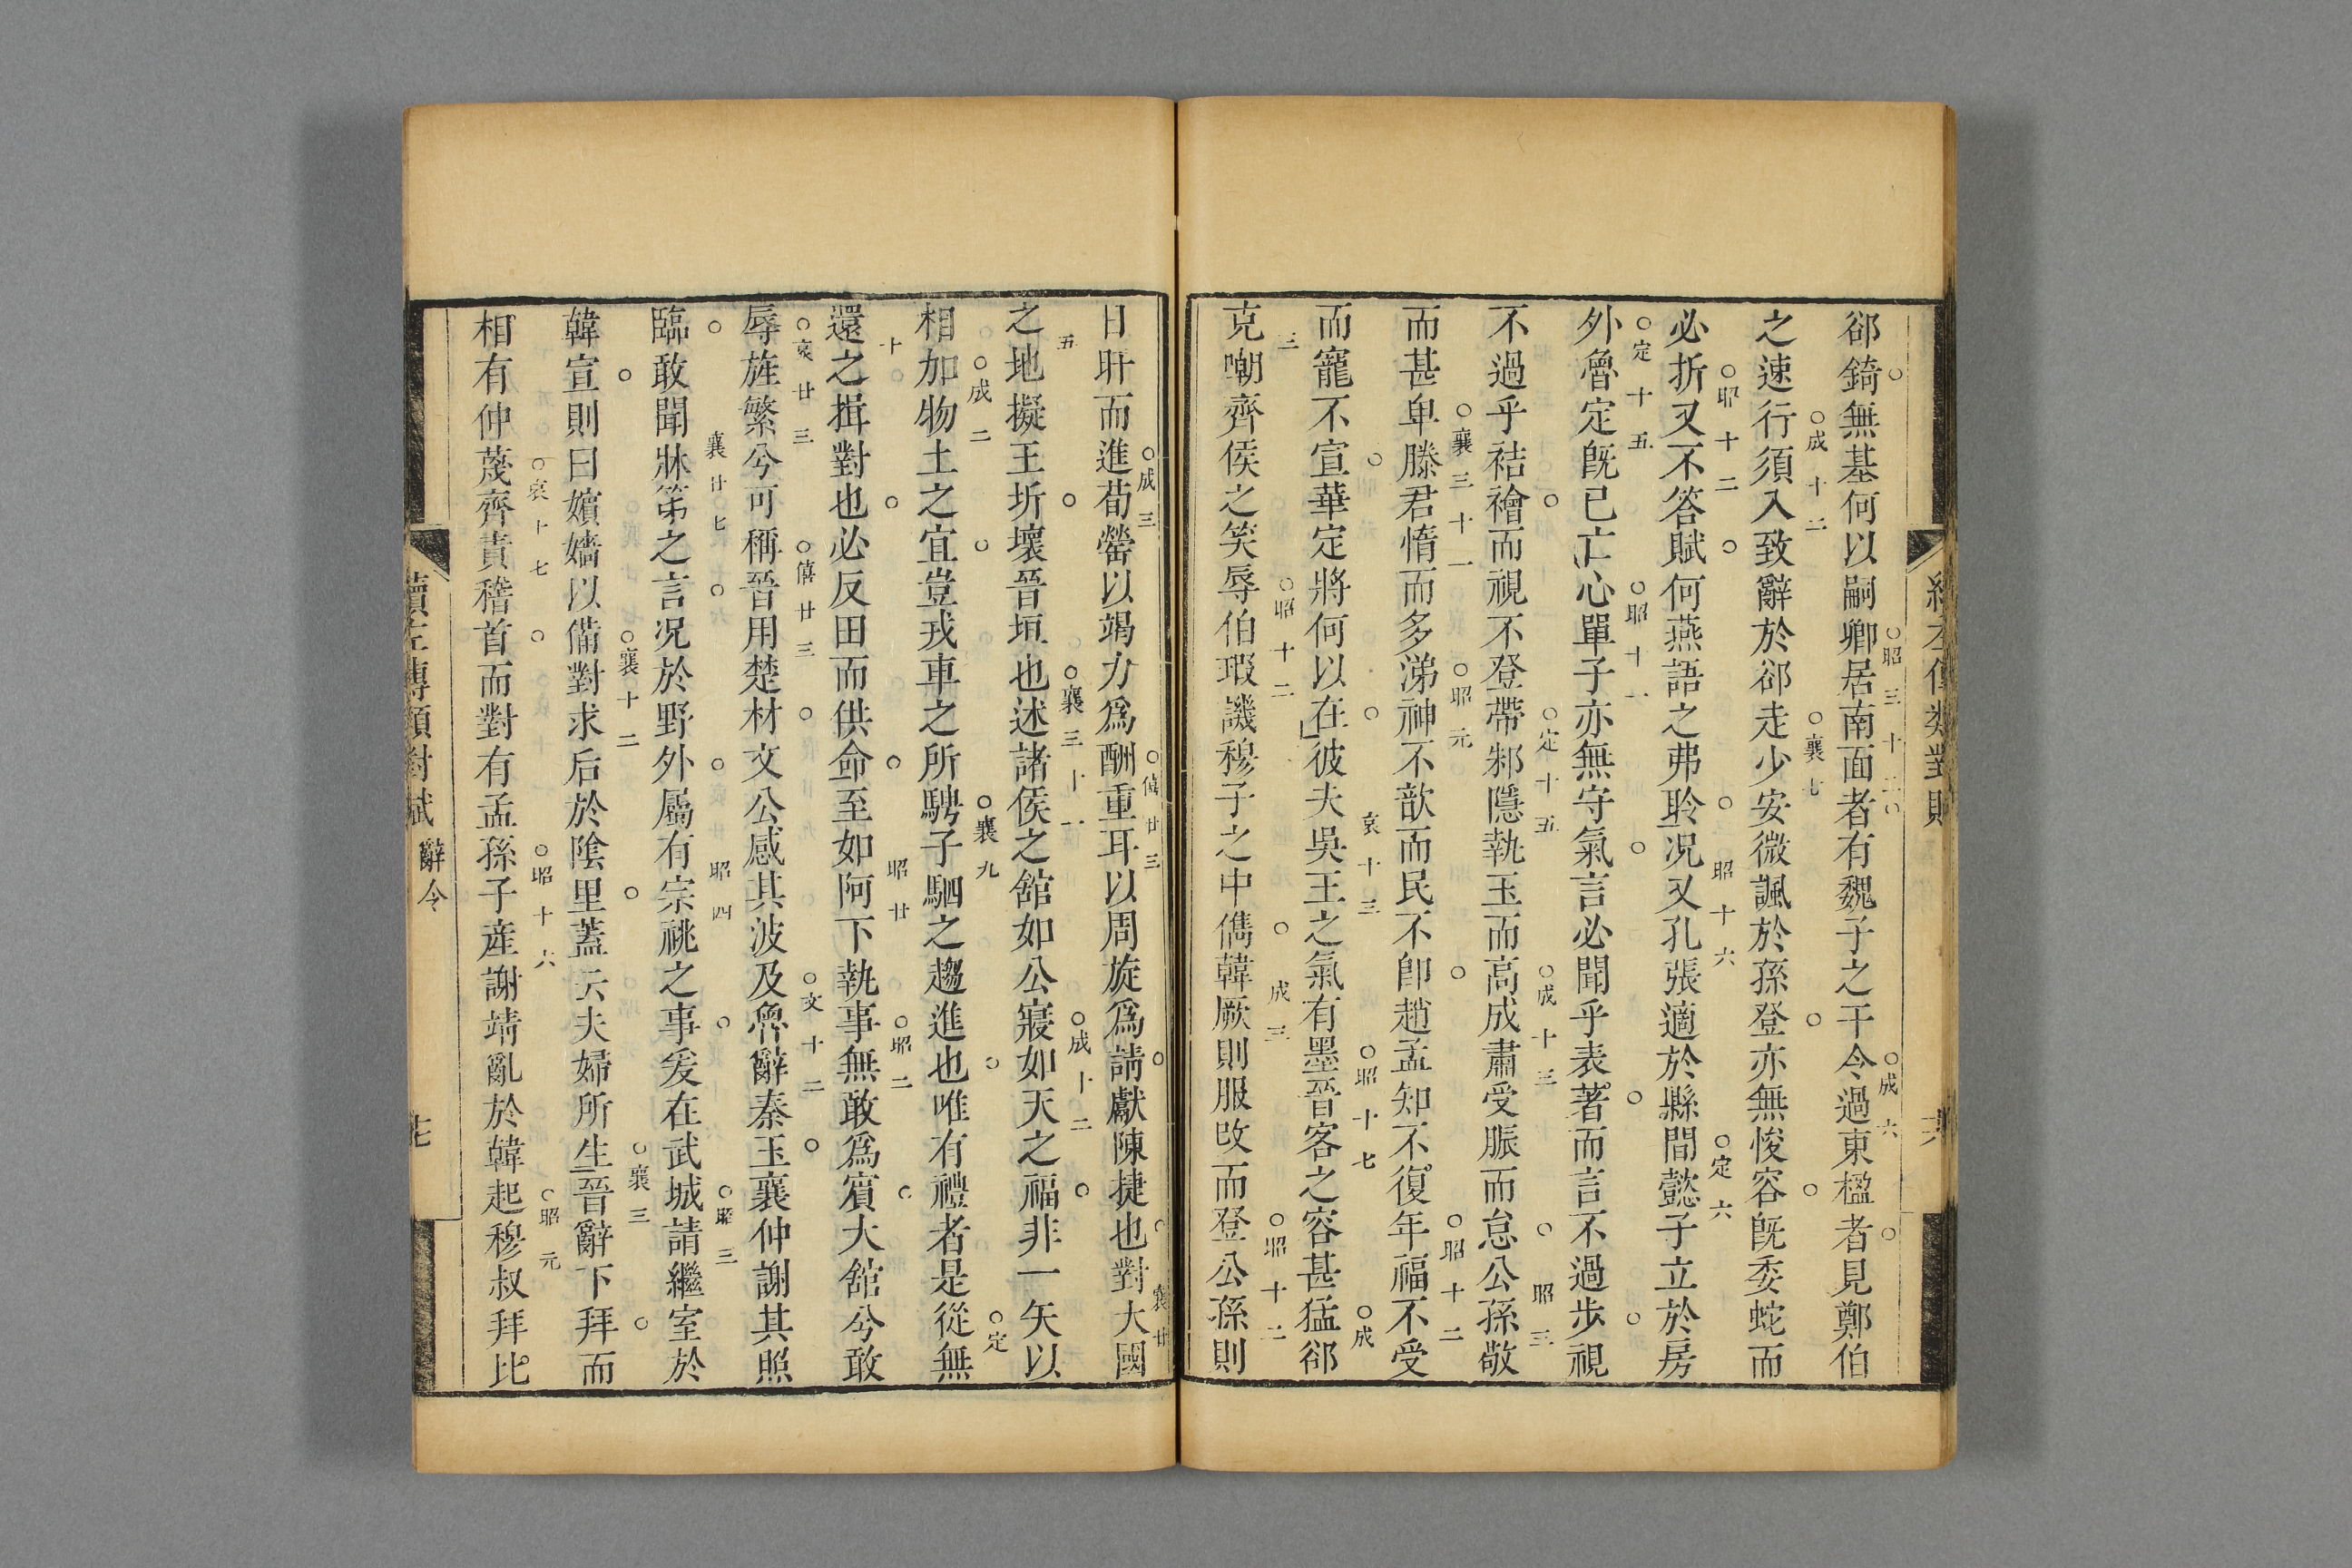 郤錡無基何以嗣卿居南面者有魏子之干今過東楹者見鄭伯
○昭三十二○ ○成六
之速行須入致辭於郤走少安微諷於孫登亦無悛容既委蛇而
○成十二 ○襄七
必折又不答賦何燕語之弗聆况又孔張適於縣間懿子立於房
○昭十二 ○昭十六 ○定六
外魯定既已亡心單子亦無守氣言必聞乎表著而言不過步視
○定十五 ○昭十一
不過乎袺禬而視不登帶邾隱執玉而高成肅受脤而怠公孫敬
○定十五 ○成十三 昭三
而甚卑滕君惰而多涕神不歆而民不卽趙孟知不復年福不受
○襄三十一 ○昭元 ○昭十二
而寵不宣華定將何以在彼夫吳王之氣有墨晉客之容甚猛郤
哀十三 ○昭十七 ○成
克嘲齊侯之笑辱伯瑕譏穆子之中儁韓厥則服改而登公孫則
三 ○昭十二 成三 ○昭十二
日旰而進荀罃以竭力爲酬重耳以周旋爲請獻陳捷也對大國
○成三 ○僖廿三 襄廿
之地擬王圻壞晉垣也述諸侯之舘如公寢如天之福非一矢以
五 ○襄三十一 ○成十二
相加物土之宜豈戎車之所騁子駟之趨進也唯有禮者是從無
○成二 ○襄九 ○定
還之揖對也必反田而供命至如阿下執事無敢爲賓大舘兮敢
十 昭廿 ○昭二
辱旌繁兮可稱晉用楚材文公感其波及魯辭秦玉襄仲謝其照
○哀廿三 ○僖廿三 ○文十二
臨敢聞牀笫之言况於野外屬有宗祧之事爰在武城請繼室於
襄廿七 昭四 ○昭三
韓宣則曰嬪嬙以備對求后於陰里蓋云夫婦所生晉辭下拜而
○襄十二 ○襄三
相有仲蔑齊責稽首而對有孟孫子產謝靖亂於韓起穆叔拜比
○哀十七 ○昭十六 ○昭元
辭令